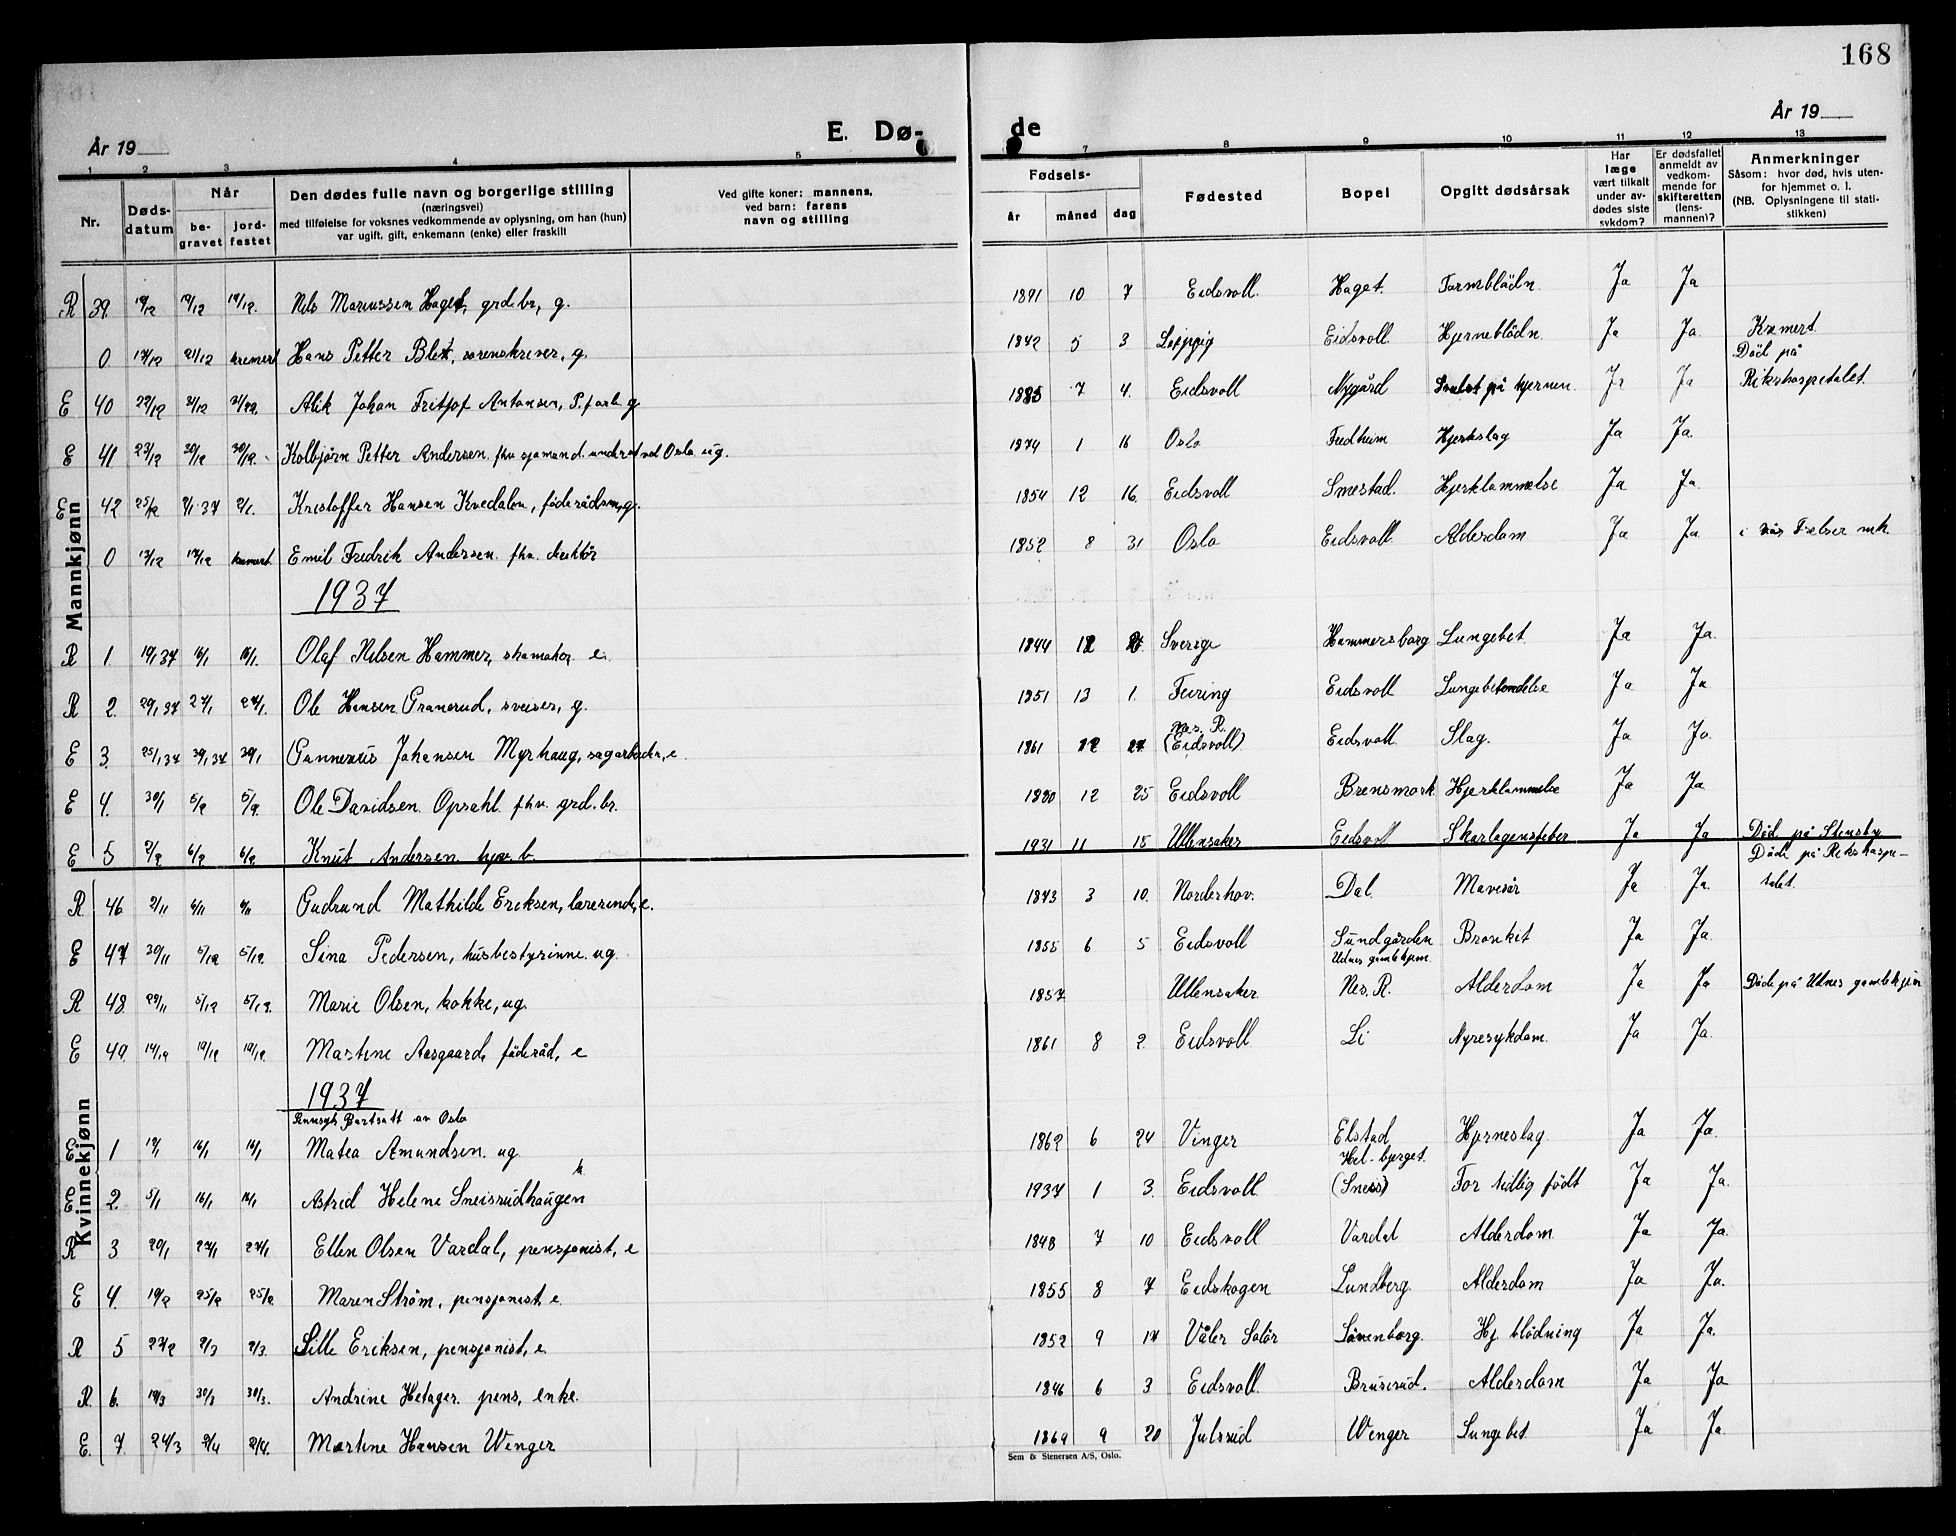 168
År 19
E. Dø-
de
År 19
1 2 3 4 5 7 8 9 10 11 12 13
Nr.
Døds-
datum
Når
be-
gravet
jord-
festet
Den dødes fulle navn og borgerlige stilling
(næringsvei)
med tilføielse for voksnes vedkommende av oplysning, om han (hun)
var ugift, gift, enkemann (enke) eller fraskilt
Ved gifte koner: mannens,
ved barn: farens
navn og stilling
Fødsels-
år måned dag
Fødested
Bopel
Opgitt dødsårsak
Har
læge
vært tilkalt
under av-
dødes siste
sykdom?
Er dødsfallet
anmeldt av
vedkom-
mende for
skifteretten
(lens-
mannen)?
Anmerkninger
Såsom: hvor død, hvis uten-
for hjemmet o. l.
(NB. Oplysningene til stati-
stikken)
Mannkjønn
R 39. 19/12 19/12. Nils Mariussen Haget, grdbr, g. 1891 10 7 Eidsvoll. Haget. Tarmblödn. Ja Ja
0 17/12 21/12 kremert Hans Petter , sorenskriver, g. 1842 5 3 Leipzig Eidsvoll Hjerneblödn. Ja Ja. Kremert.
Död på
E 40 Alik Johan Fritjof Antonsen, g 1885 7 4. Eidsvoll Nygård på hjernen. Ja Ja Rikshospitalet.
E 41 23/12 30/12 30/12. Kolbjörn Petter Andersen. fhv sjømand. Oslo ug. 1874 1 16 Oslo Fredheim Hjerteslag Ja Ja.
E 42 25/12 2/1 37 2/1. Kristoffer Hansen Kvedalen, föderådsm, g. 1854 12 16. Eidsvoll Smestad. Hjerklammelse Ja Ja.
0 17/12 kremert. Emil Fredrik Andersen. fhv. direktör 1852 8 31 Oslo Eidsvoll. Alderdom Ja Ja. i Frelser mh.
1937
R 1 16/1 16/1. Olaf Nilsen Hammer, skomaker e. 1844 12 Sverige Hammersborg Lungebet. Ja Ja.
R 2. 27/1 27/1. Ole Hansen Granerud, sveiser, g. 1851 1. Feiring Eidsvoll Lungebetendelse Ja Ja
Nes. R.
E 3. 25/1 37 30/1 37 30/1 Gunnerius Johansen Myrhaug, sagarbeider, e. 1861 12 27 (Eidsvoll) Eidsvoll Slag. Ja Ja.
E 4. 30/1 5/2 5/2. Ole Davidsen Opsahl fhv. grd.br. 1880 12 25 Eidsvoll Brensmork Hjerklammelse Ja Ja
E 5 2/2 6/2 6/2 Knut Andersen 1931 11 15 Ullensaker Eidsvoll Skarlagensfeber Ja Ja Död på Stensby
Död på Rikshospi-
R 46 2/11 6/11 6/11 Gudrund Mathilde Eriksen, lærerinde, e. 1843 3 10. Norderhov. Dal. Mavesår Ja Ja. talet.
E 47 30/11 5/12 5/12. Sina Pedersen, husbestyrinne. ug. 1855 6 5 Eidsvoll Sundgården Bronkit Ja Ja.
Udnes gamlehjem.
R 48. 29/11 5/12 5/12. Marie Olsen, kokke, ug. 1857 Ullensaker. Nes. R. Alderdom Ja Ja Död på Udnes gamlehjem
E 49. 14/12 19/12 19/12. Martine Aasgaard, föderåd, e 1861 8 2. Eidsvoll Li Nyresykdom. Ja Ja.
1937
av Oslo
Kvinnekjønn
E 1 16/1 16/1 Matea Amundsen. ug. 1862 6 24 Vinger Elstad Hjerneslag. Ja Ja.
E 2. 5/1 16/1 16/1 Astrid Helene Sneisrudhaugen 1937 1 3. Eidsvoll For tidlig födt Ja Ja.
R 3 20/1 27/1 27/1 Ellen Olsen Vardal, pensjonist, e 1848 7 10 Eidsvoll Vardal Alderdom. Ja Ja.
E 4. 19/2 25/2 25/2 Maren Ström, pensjonist, e. 1855 8 7 Eidskogen Lundberg. Alderdom Ja Ja.
R 5 27/2 2/3 2/3. Sille Eriksen, pensjonist, e. 1852 9 17 Våler Solör Hj. blödning Ja Ja.
R. 6. 19/3 30/3 30/3. Andrine Hetager. pens, enke. 1846 6 3 Eidsvoll. Brusrud. Alderdom Ja Ja
E. 7. 24/3 2/4 2/4. Martine Hansen Wenger 1869 9 20 Julsrud Wenger Lungebet Ja Ja.
Sem & Stenersen A/S, Oslo.